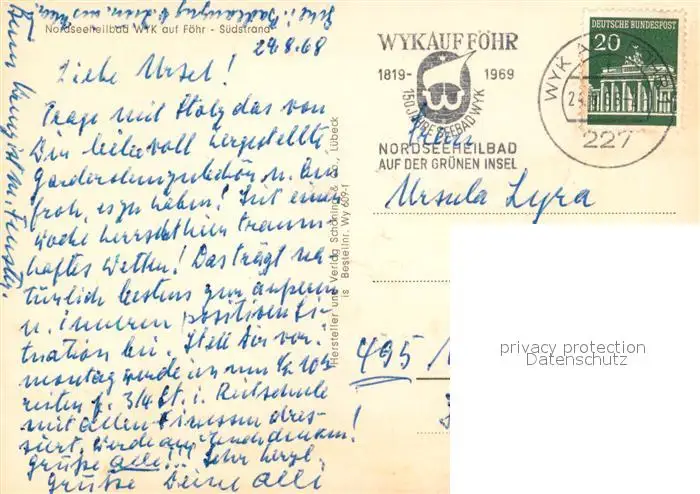 Nordseeheilbad WYK auf Föhr - Südstrand
29.8.68
Liebe Ursel!
Trage mit Stolz das von
Dir liebevoll hergestellte
Garderobenzubehör u. bin
froh, es zu haben! Seit einer
Woche herrscht hier traum-
haftes Wetter! Das trägt na-
türlich bestens zur äußeren
u. inneren positiven Si-
tuation bei. Stell Dir vor,
montag werde ich um ½ 10
reiten f. 3/4 St. i. Reitschule
mit allen Finessen dres-
siert. Werde an denken!
Grüße alle!!! Sehr herzl.
Grüße Deine Alli
Beim
Hersteller und Verlag Schöning & Co., Lübeck
is Bestellnr. Wy 609-f
WYK AUF FÖHR
1819- 1969
150 JAHRE SEEBAD WYK
NORDSEEHEILBAD
AUF DER GRÜNEN INSEL
DEUTSCHE BUNDESPOST
20
WYK A
227
Frau
Ursula Lyra
495
privacy protection
Datenschutz